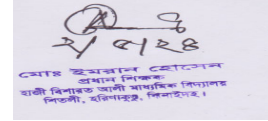 ২/৫/২৪
মোঃ ইমরান হোসেন
প্রধান শিক্ষক
হাজী বিশারত আলী মাধ্যমিক বিদ্যালয়
শিতলী, হরিণাকুন্ডু, ঝিনাইদহ।